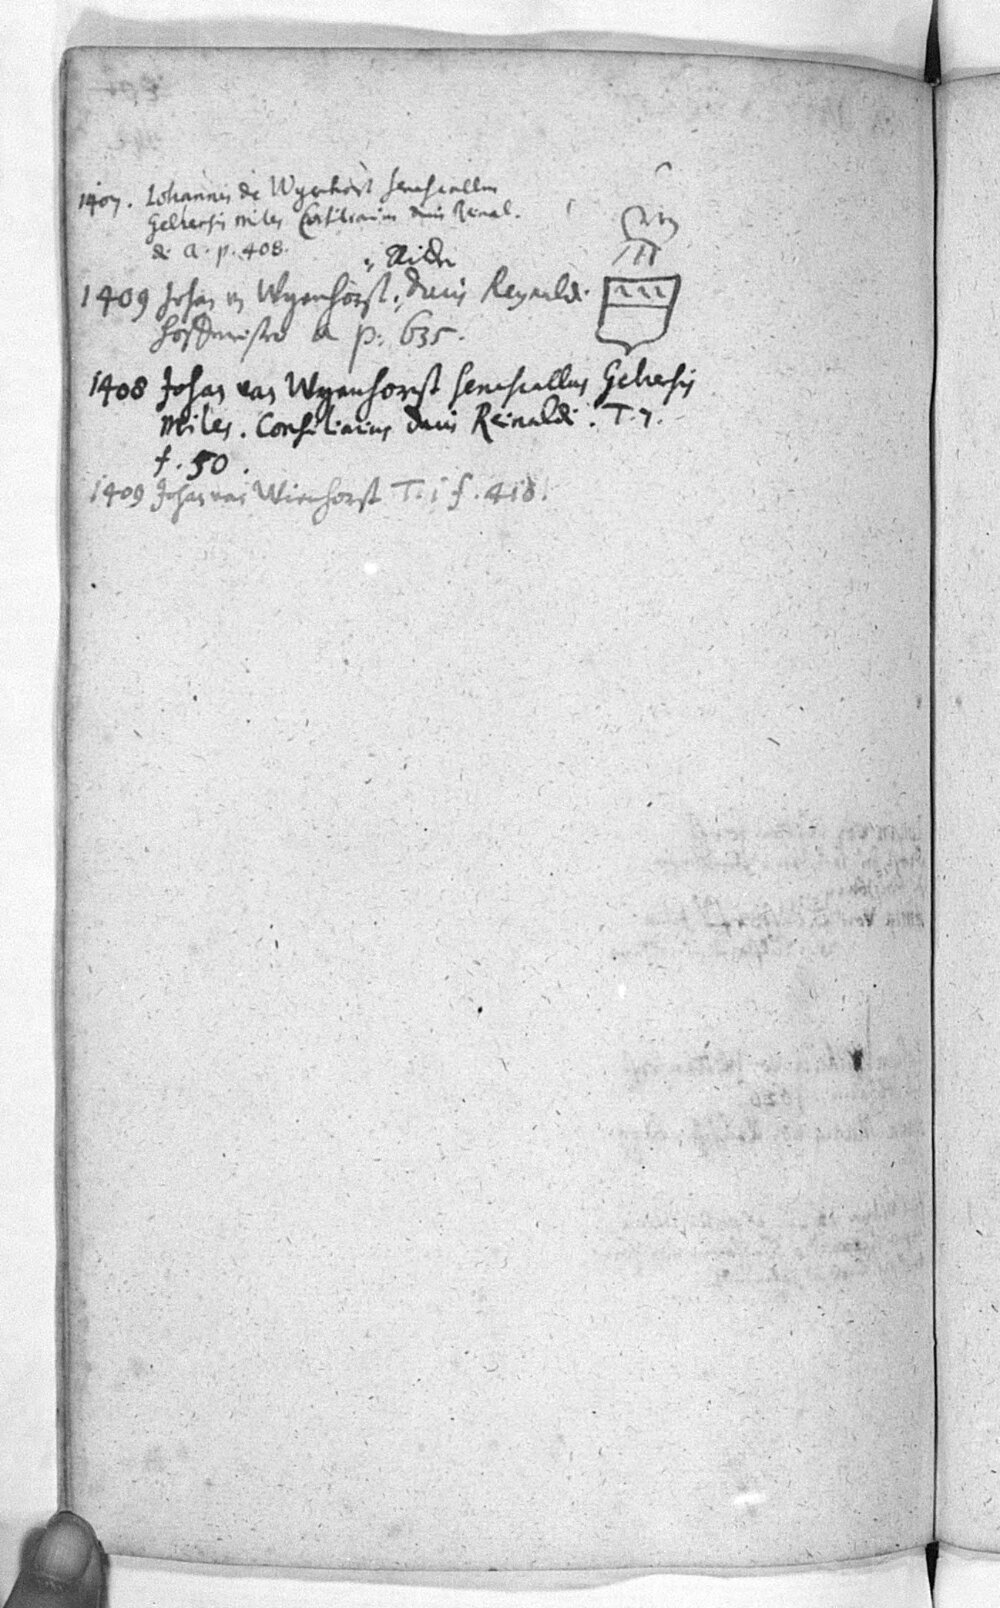 1407. Iohannes de Wyenhorst senescallus
Gelrensis miles Consiliarius ducis Reinal.
de a. p. 408.
Ridder
1409 Johan vn Wyenhorst, ducis Reynaldi
hoffmeister a p. 635.
1408 Johan van Wyenhorst senescallus Gelrensis
miles. Consiliarius ducis Reinaldi. T. 7.
f. 50.
1409 Johan van Wienhorst T. 1 f. 418.